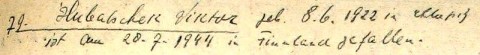 79. Hubatschek Viktor geb. 8.6.1922 in
ist am 20.7.1944 in Finnland gefallen.